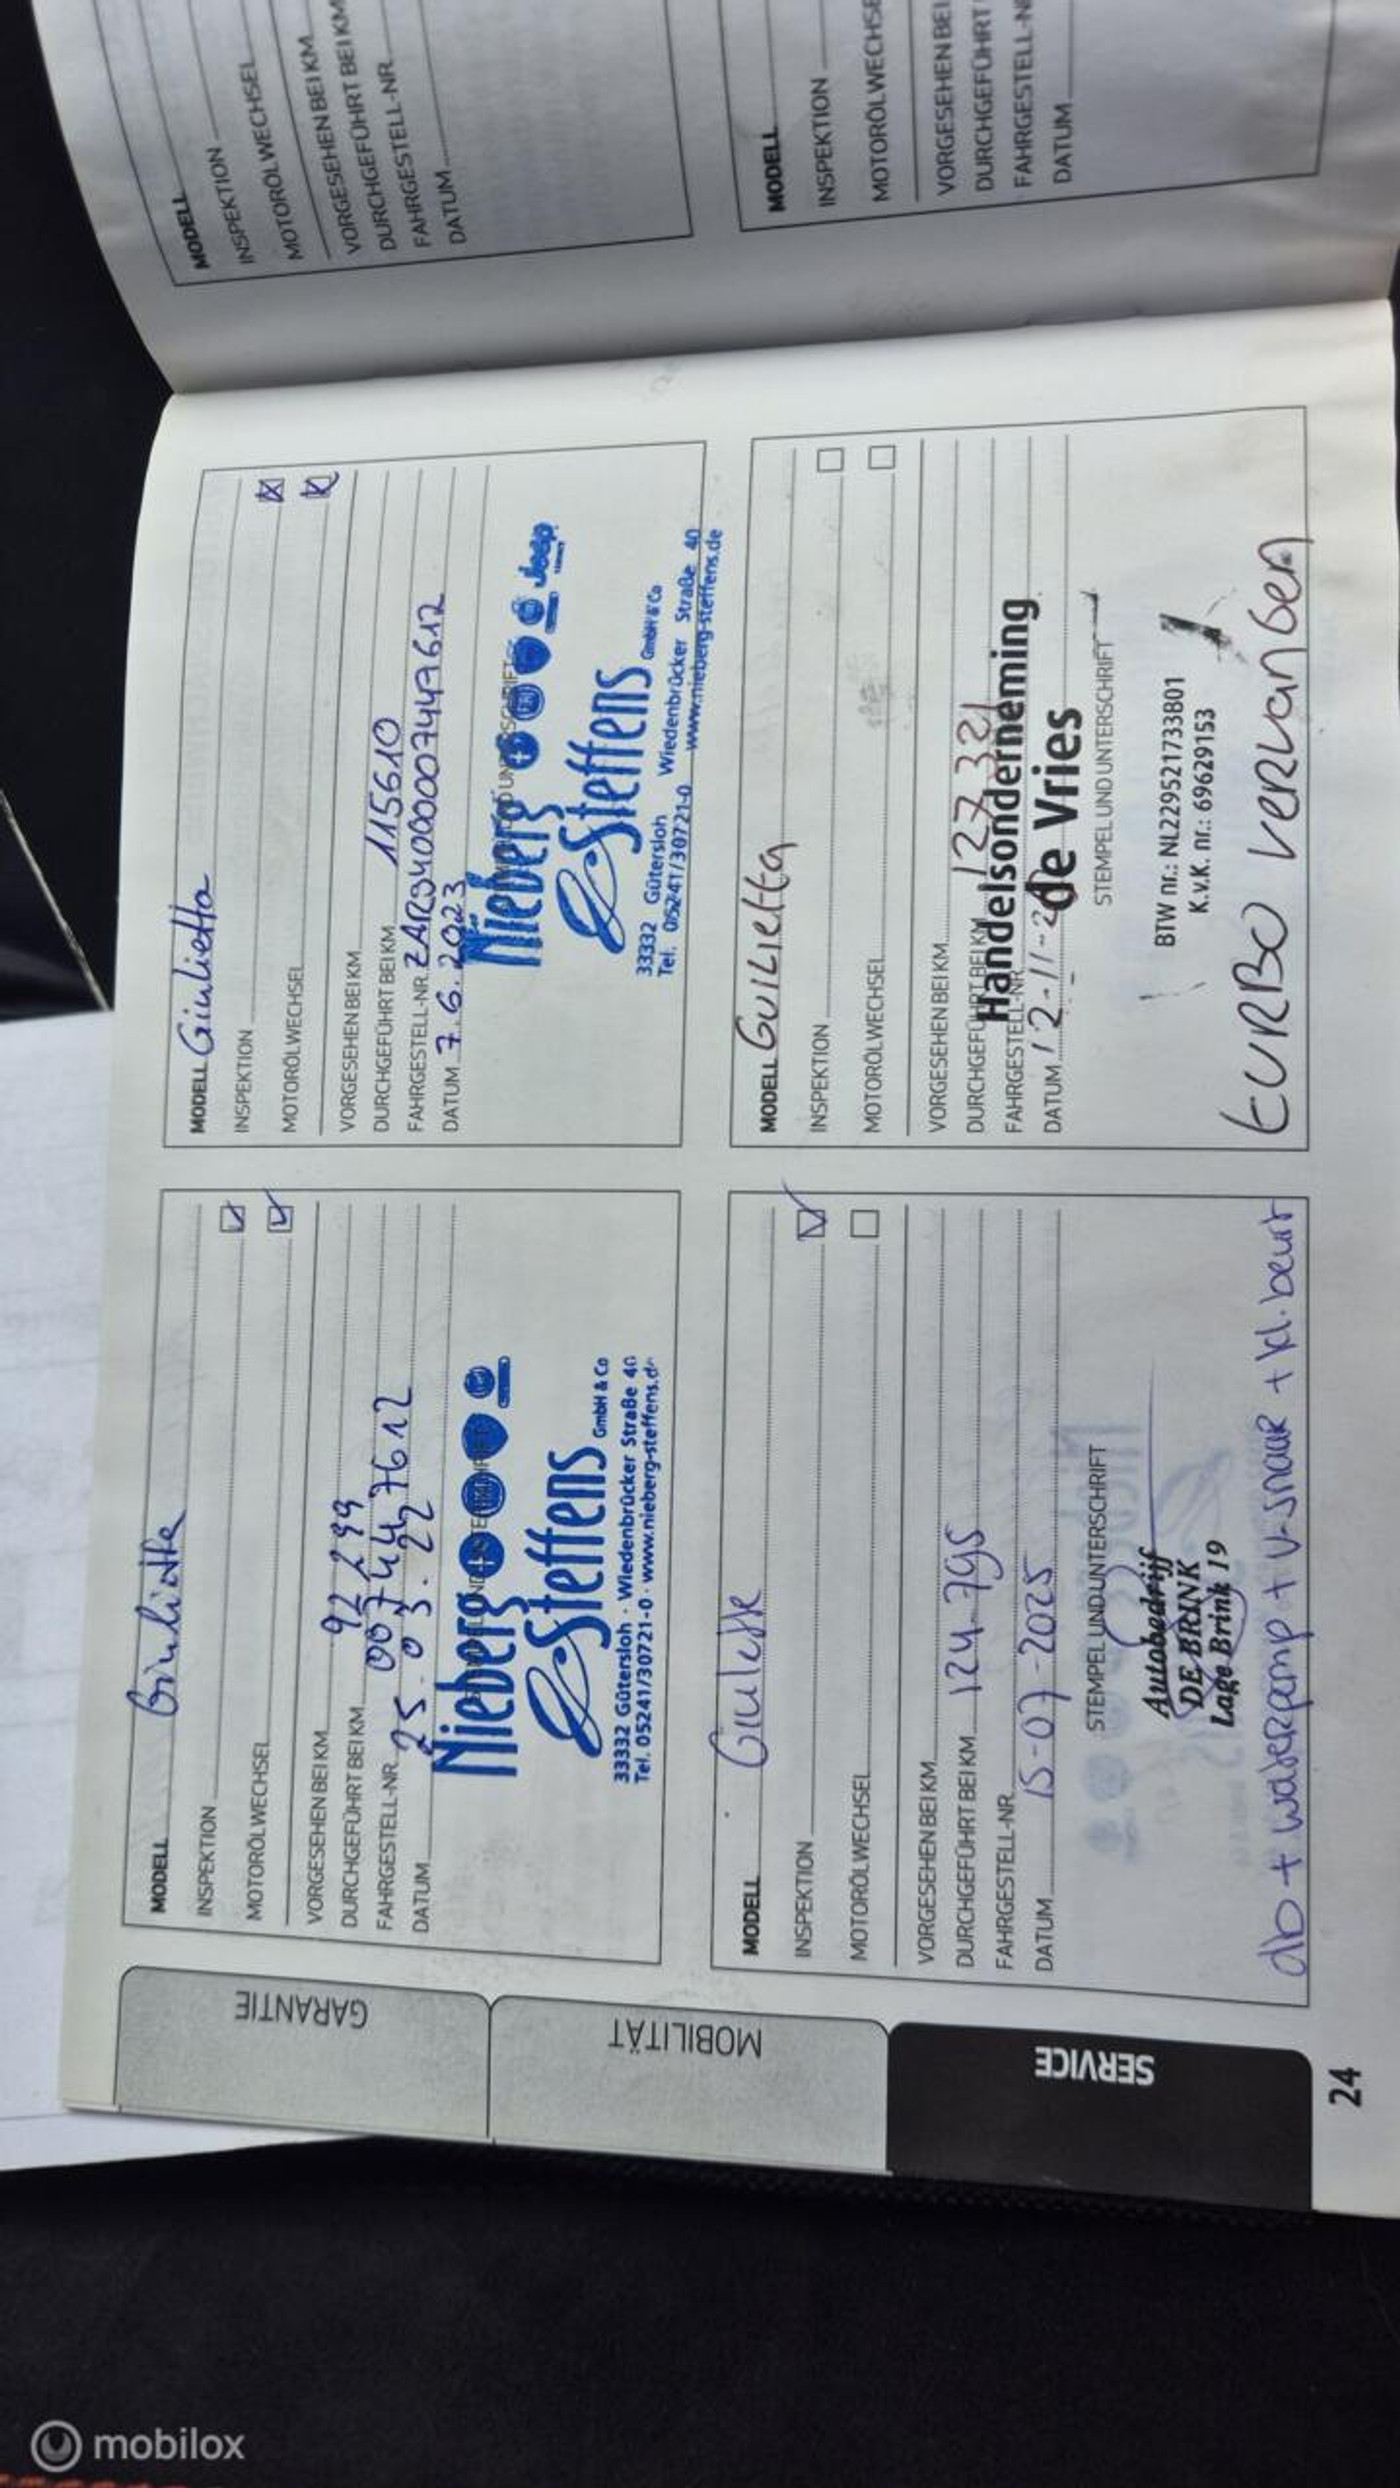 MODELL Giulietta
INSPEKTION
MOTORÖLWECHSEL
VORGESEHEN BEI KM
DURCHGEFÜHRT BEI KM 92 299
FAHRGESTELL-NR. 007447612
DATUM 25.03.22
STEMPEL UND UNTERSCHRIFT
Nieberg
& Steffens GmbH & Co
33332 Gütersloh · Wiedenbrücker Straße 40
Tel. 05241/30721-0 · www.nieberg-steffens.de
MODELL Giulietta
INSPEKTION
MOTORÖLWECHSEL
VORGESEHEN BEI KM
DURCHGEFÜHRT BEI KM 115610
FAHRGESTELL-NR. ZAR94000007447612
DATUM 7.6.2023
STEMPEL UND UNTERSCHRIFT
Nieberg Jeep
& Steffens GmbH & Co
33332 Gütersloh Wiedenbrücker Straße 40
Tel. 05241/30721-0 www.nieberg-steffens.de
MODELL Giulette
INSPEKTION
MOTORÖLWECHSEL
VORGESEHEN BEI KM
DURCHGEFÜHRT BEI KM 124.795
FAHRGESTELL-NR.
DATUM 15-07-2025
STEMPEL UND UNTERSCHRIFT
Autobedrijf
DE BRINK
Lage Brink 19
db + waterpomp + v-snaar + kl. beurt
MODELL GUILIETTA
INSPEKTION
MOTORÖLWECHSEL
VORGESEHEN BEI KM
DURCHGEFÜHRT BEI KM 127321
FAHRGESTELL-NR.
Handelsonderneming
DATUM 12-11-2
de Vries
STEMPEL UND UNTERSCHRIFT
BTW nr.: NL229521733B01
K.v.K. nr.: 69629153
tURBO VERVANGEN
GARANTIE
MOBILITÄT
SERVICE
24
MODELL
INSPEKTION
MOTORÖLWECHSEL
VORGESEHEN BEI KM
DURCHGEFÜHRT BEI KM
FAHRGESTELL-NR.
DATUM
MODELL
INSPEKTION
MOTORÖLWECHSE
VORGESEHEN BEI
DURCHGEFÜHRT
FAHRGESTELL-N
DATUM
mobilox